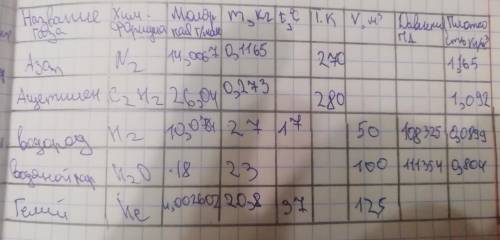 Название газа | Хим. формула | Моляр | m, кг | t, °C | T. К | V, м³ | Давление Па | Плотность кг/м³
Азот | N₂ | 14,0067 | 0,1165 | | 270 | | | 1,165
Ацетилен | C₂H₂ | 26,04 | 0,273 | | 280 | | | 1,092
Водород | H₂ | 27 | 17 | | 50 | 108325 | 0,0899
Водяной пар | H₂O | 18 | 23 | | | 100 | 111354 | 0,804
Гелий | He | 4,002602 | 20,8 | 37 | | 125